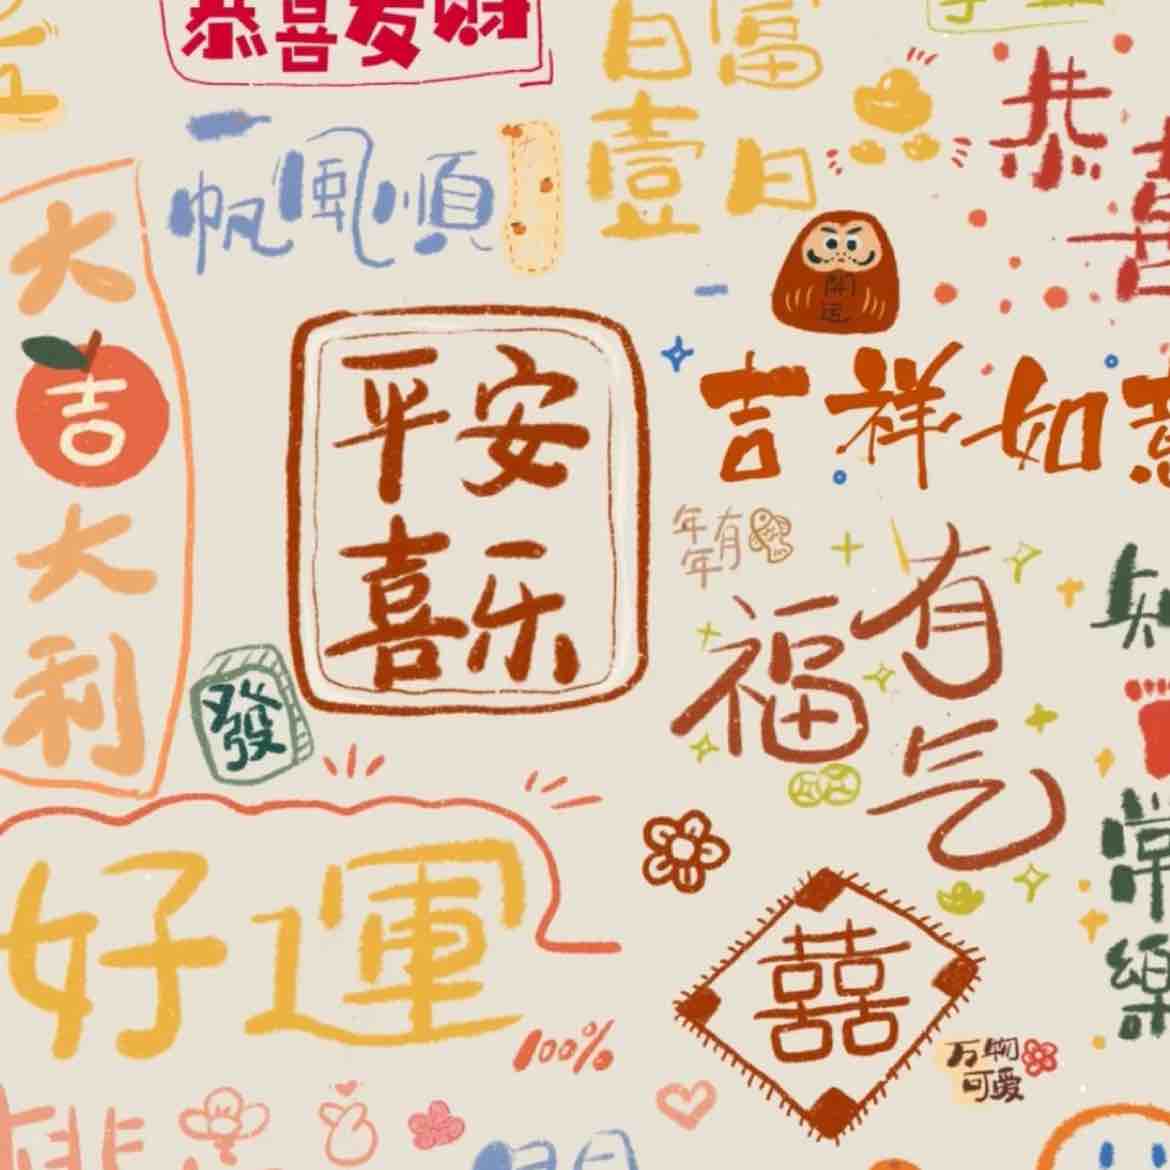 恭喜发财
日富
壹日
恭
喜
一帆風順
大
吉
大
利
開
运
平安
喜乐
吉祥如意
年有
年
有
福
气
知
常
樂
發
好運
100%
囍
万物
可爱